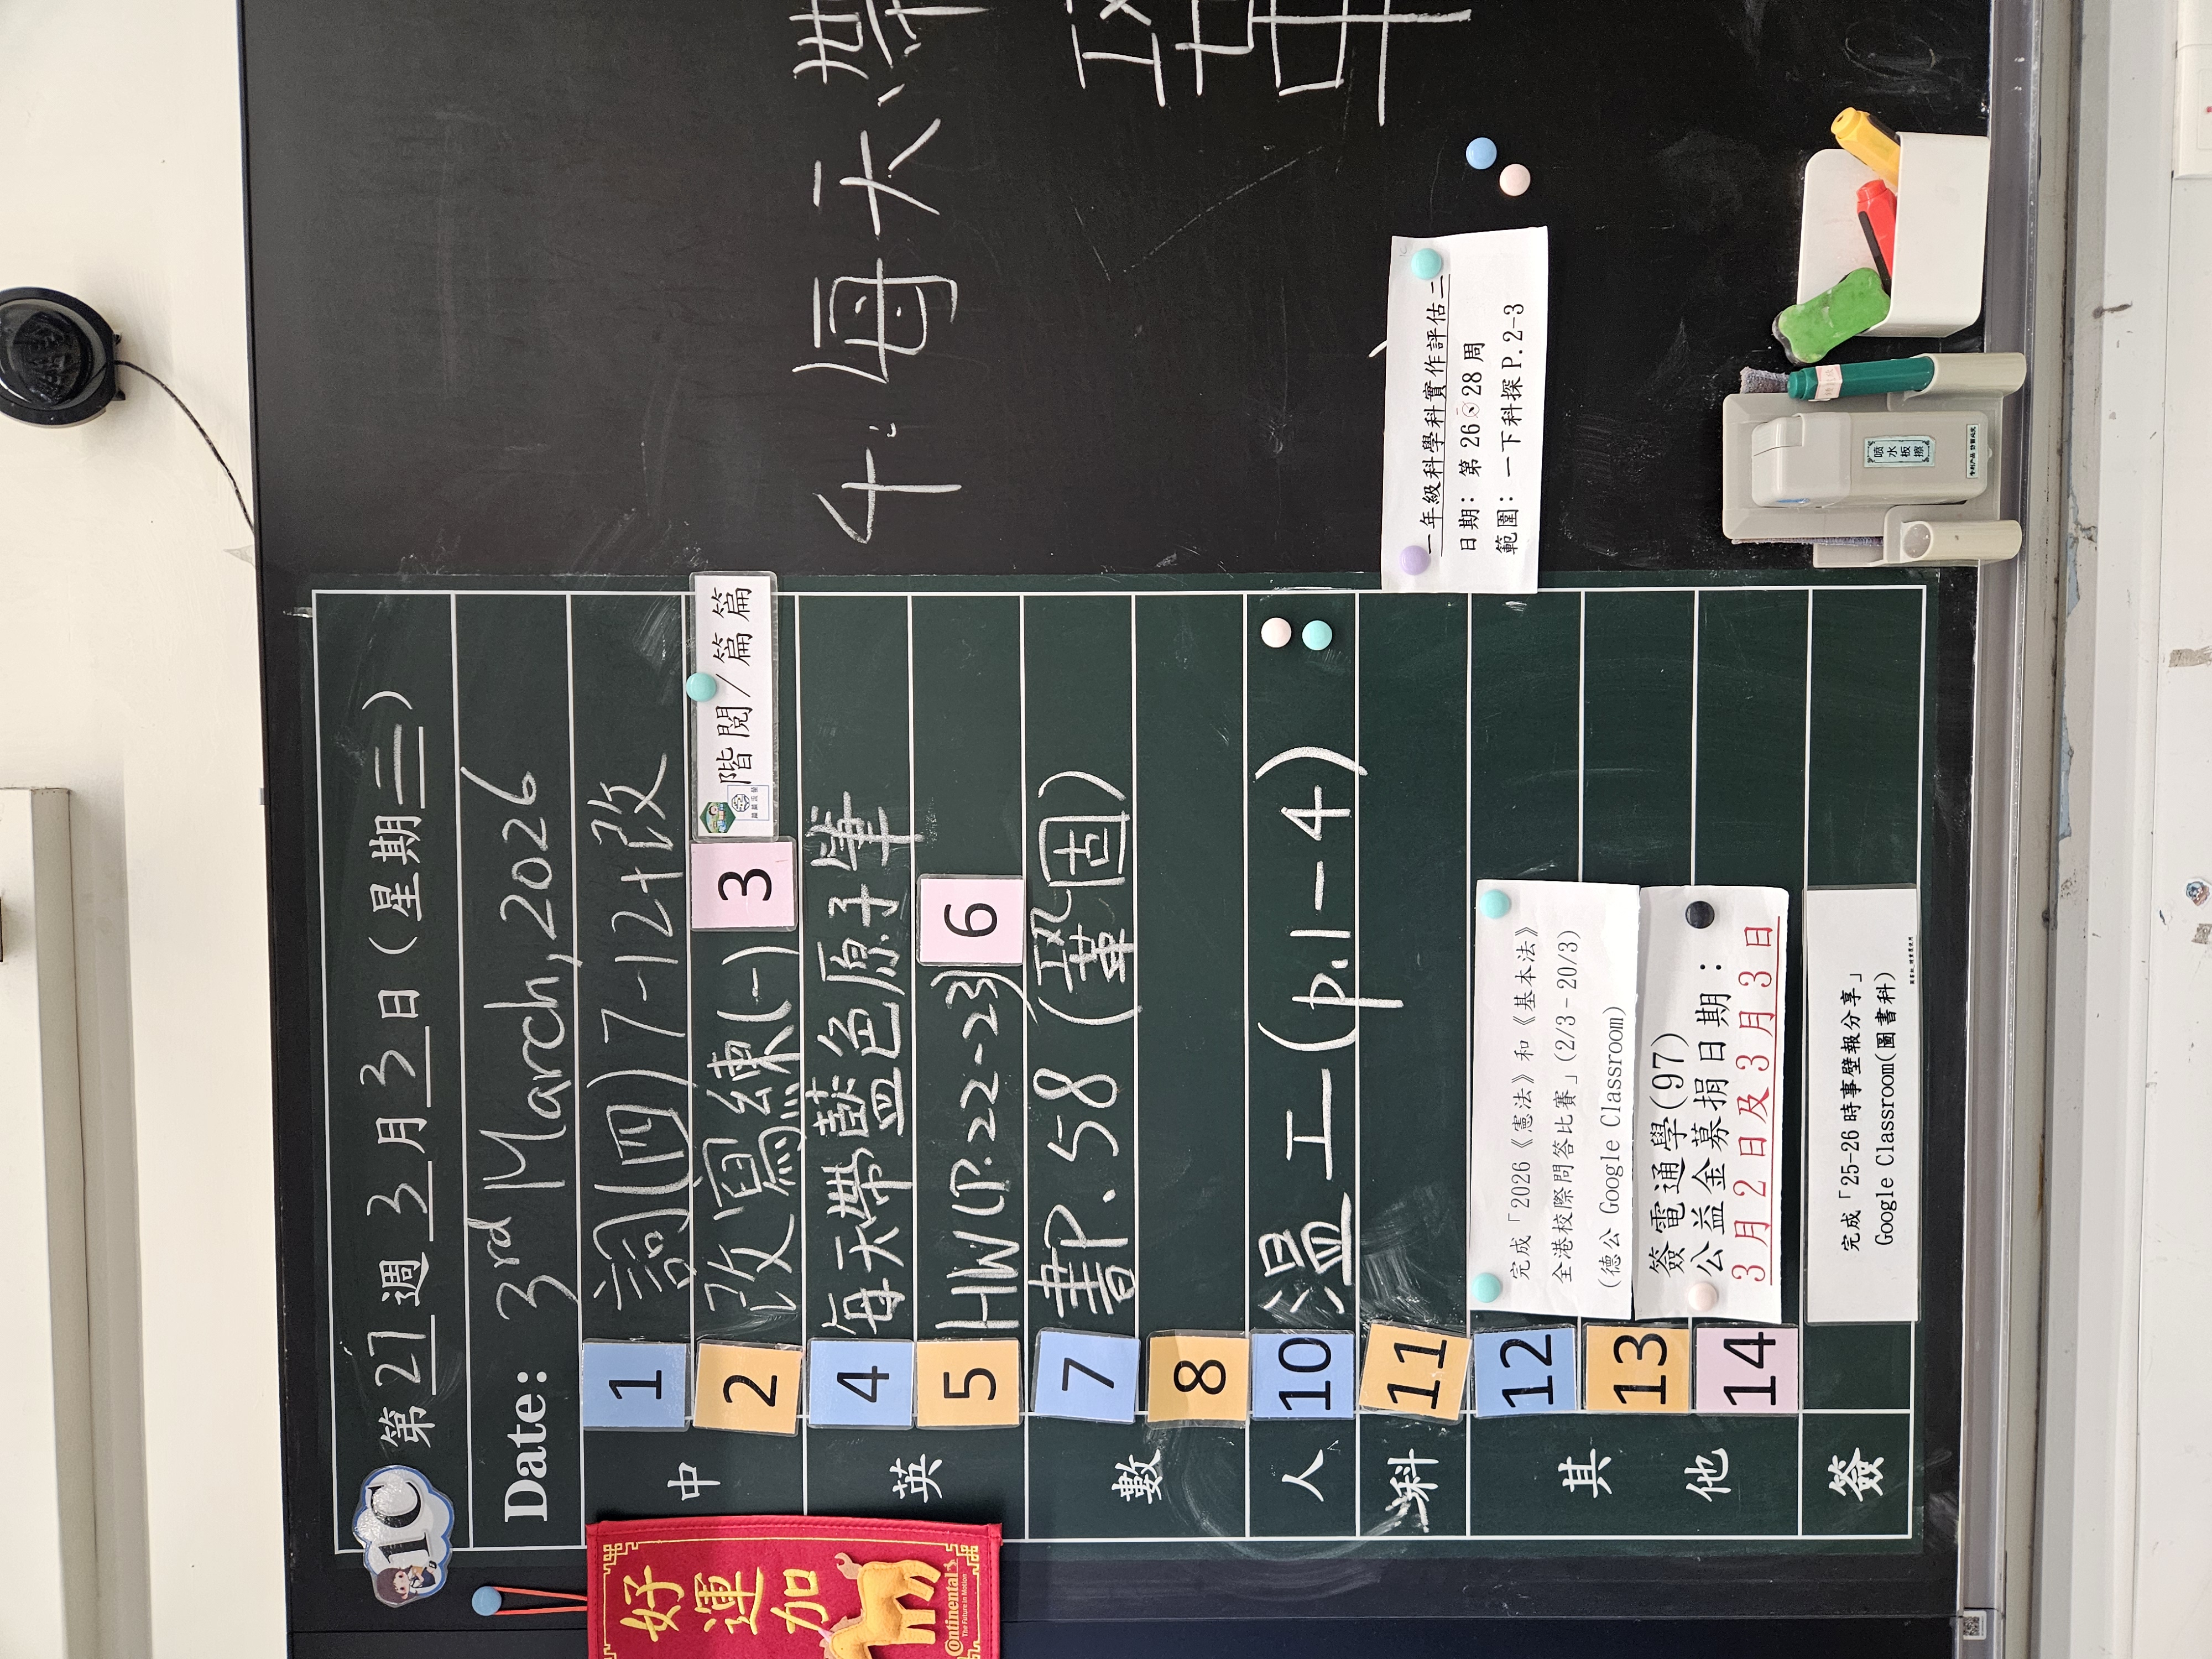 1C
第 27 週 3 月 3 日 (星期 二)
Date: 3rd March, 2026
中
1 詞(四) 7-12+改
2 改寫練(一) 3 階閱/篇篇
英
4 每天帶藍色原子筆
5 HW(P.22-23) 6
數
7 書P.58 (鞏固)
8
人
10 溫工 (p.1-4)
科
11
其他
12 完成「2026《憲法》和《基本法》
全港校際問答比賽」(2/3-20/3)
(德公 Google Classroom)
13 簽電通學(97)
14 公益金募捐日期：
3月2日及3月3日
簽
完成「25-26 時事壁報分享」
Google Classroom(圖書科)
牛. 每天帶
一年級科學科實作評估二
日期：第 26 28 周
範圍：一下科探 P.2-3
好運加
Continental
The Future in Motion
噴水板擦